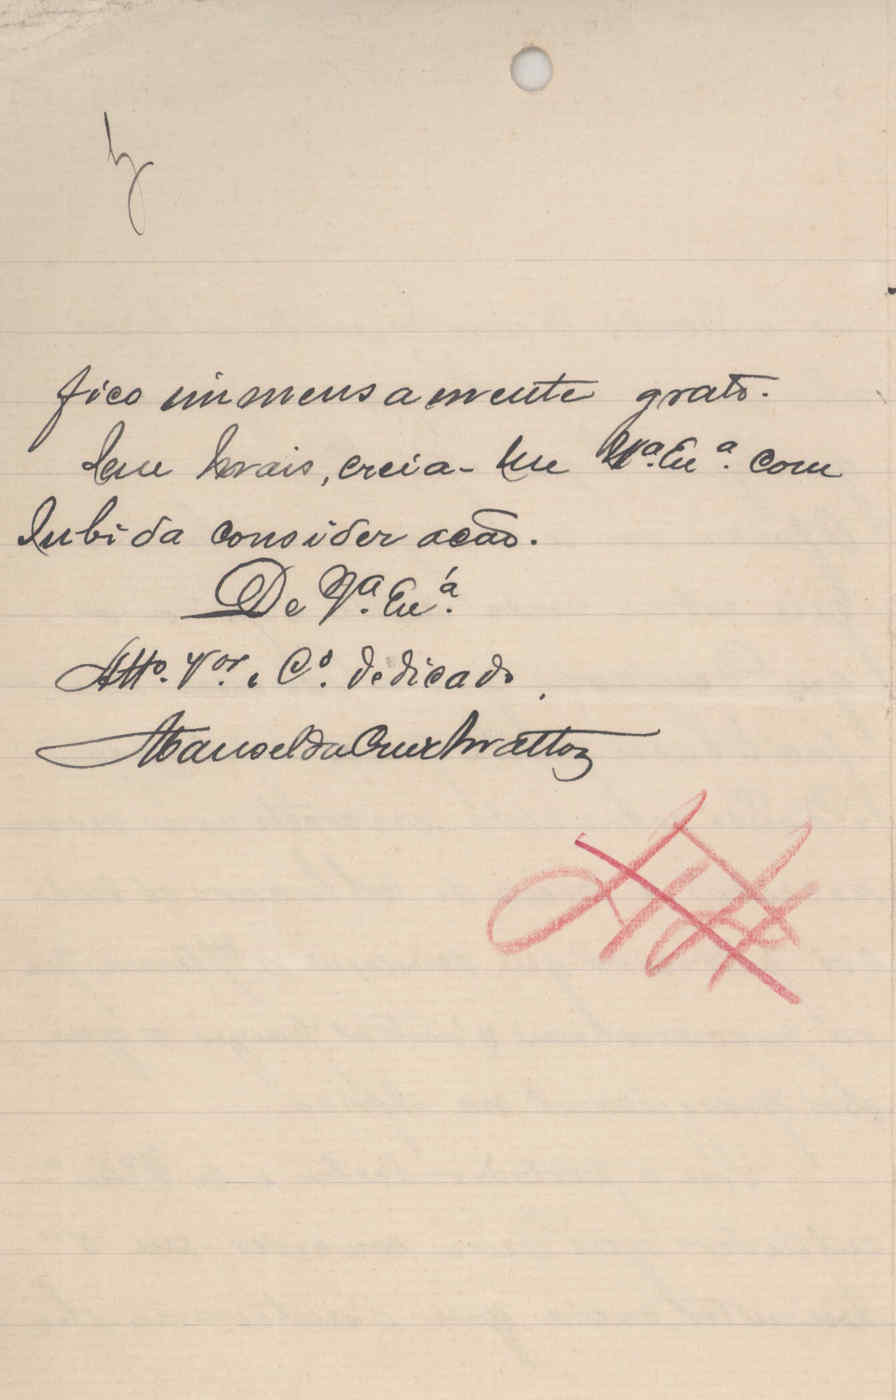 fico immensamente grato.
Sem mais, creia-me V.ª Ex.ª com
subida consideração.
De V.ª Ex.ª
Att.º V.or e C.º dedicado,
Manoel da Cruz Mattos